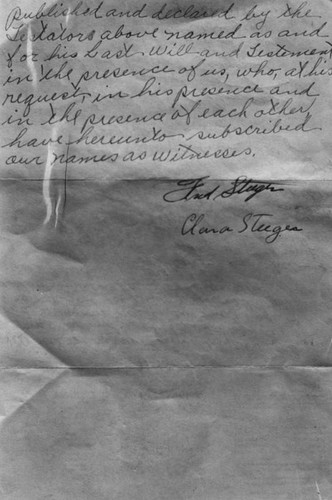 Published and declared by the
Testators above named as and
for his Last Will and Testement
in the presence of us, who, at his
request, in his presence and
in the presence of each other,
have hereunto subscribed
our names as witnesses.
Fred Steger
Clara Steeger